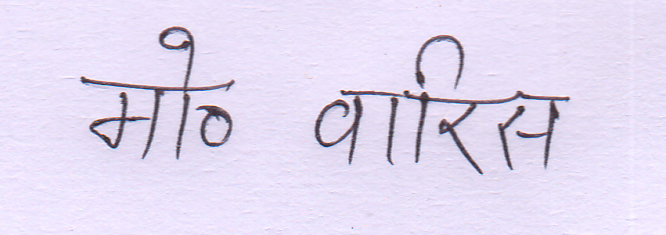 मो० वारिस